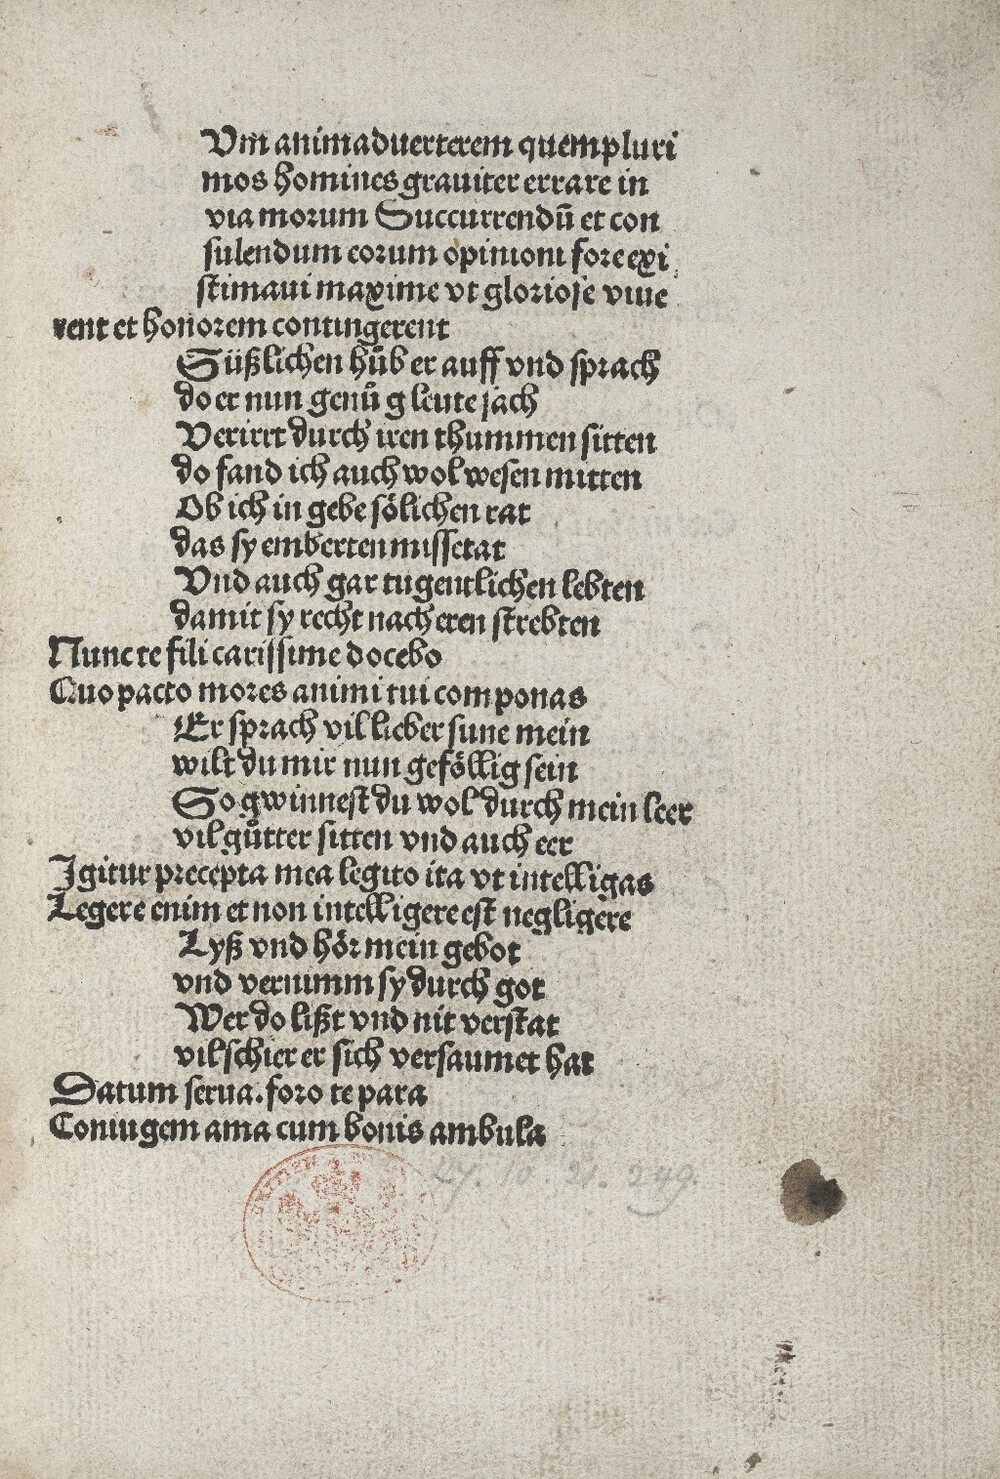 Vm animaduerterem quempluri
mos homines grauiter errare in
via morum Succurrendū et con
sulendum eorum opinioni fore exi
stimaui maxime vt gloriose viue
rent et honorem contingerent
Süßlichen hůb er auff vnd sprach
do er nun genůg leute jach
Verirrt durch iren thummen sitten
do fand ich auch wol wesen mitten
Ob ich in gebe sölichen rat
das sy emberten missetat
Vnd auch gar tugentlichen lebten
damit sy recht nach eren strebten
Nunc te fili carissime docebo
Quo pacto mores animi tui componas
Er sprach vil lieber sune mein
wilt du mir nun geföllig sein
So gwinnest du wol durch mein leer
vil gůtter sitten vnd auch eer
Igitur precepta mea legito ita vt intelligas
Legere enim et non intelligere est negligere
Lyß vnd hör mein gebot
vnd vernimm sy durch got
Wer do lißt vnd nit verstat
vil schier er sich versaumet hat
Datum serua. foro te para
Coniugem ama cum bonis ambula
27. 10. 21. 249.